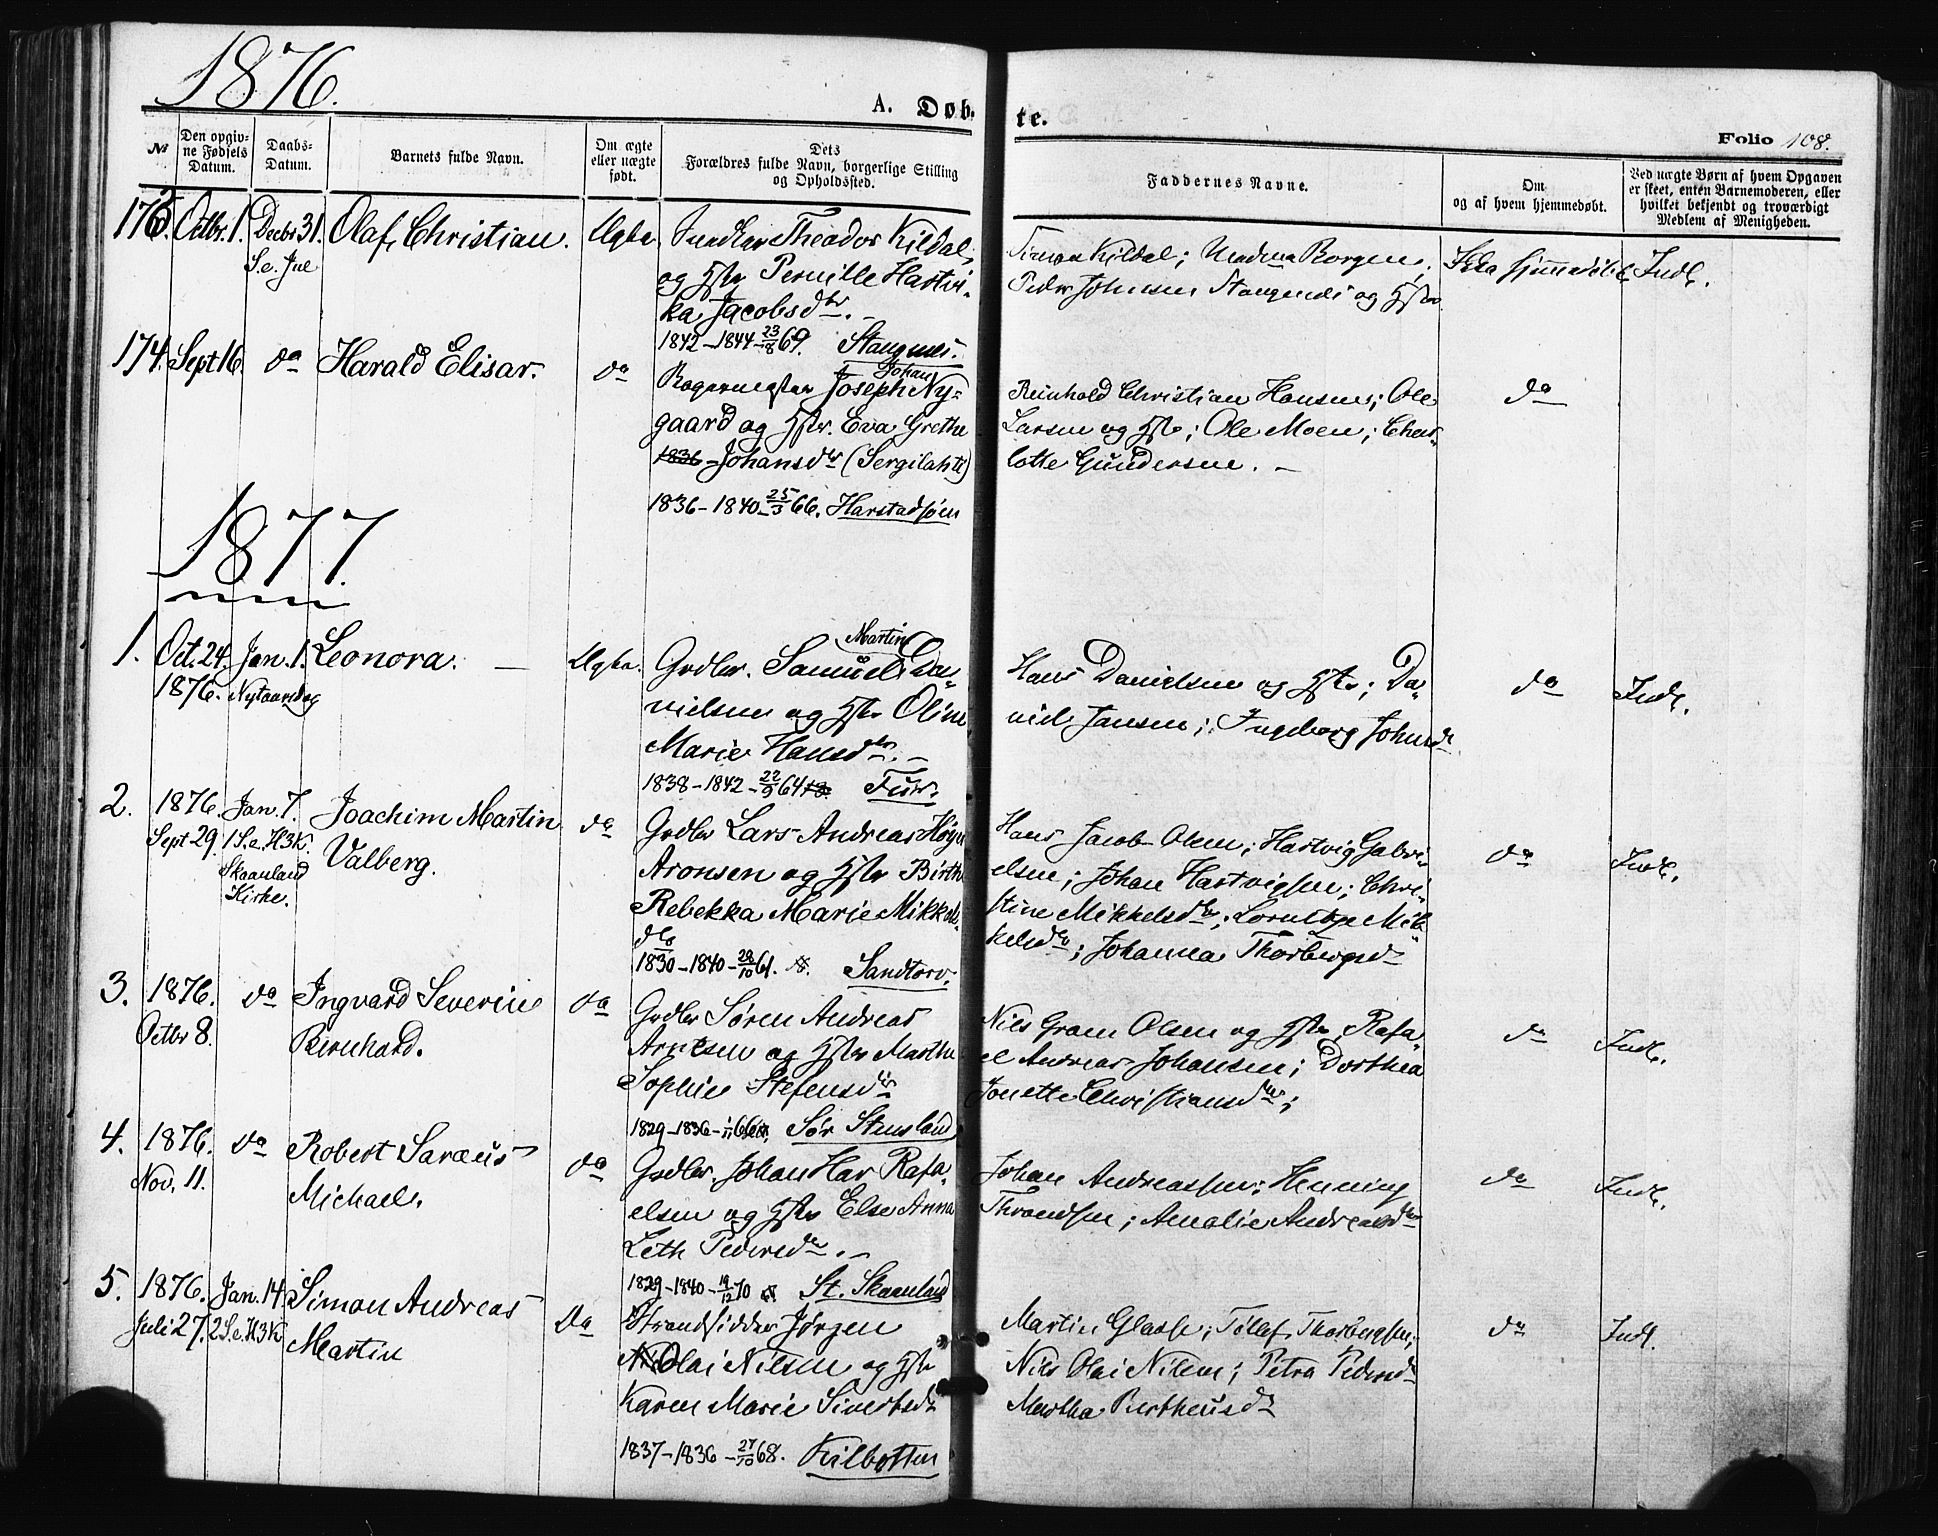 1876.
A. Døb-
te.
Folio 108.
№
Den opgiv-
ne Fødsels
Datum.
Daabs-
Datum.
Barnets fulde Navn.
Om ægte
eller uægte
født.
Dets
Forældres fulde Navn, borgerlige Stilling
og Opholdssted.
Faddernes Navne.
Om
og af hvem hjemmedøbt.
Ved uægte Børn af hvem Opgaven
er skeet, enten Barnemoderen, eller
hvilket bekjendt og troværdigt
Medlem af Menigheden.
173. Octbr. 1. Decbr 31. Olaf Christian. Ægte.
S. e. Jul
Theodor Kildal
og Hstr Pernille Hartvi-
ka Jacobsdtr. –
1842–1844–23/8 69. Stangnes.
Simon Kildal; Borgen;
Peder Johnsen Stangnes og Hstr
Ikke hjemmedøbt. Indl.
174. Sept 16. do Harald Elisar. do
Johan
Bagermester Joseph Ny-
gaard og Hstr. Eva Grethe
1836 – Johansdtr (Sergilahti)
1836–1840–25/3 66. Harstadsjøen
Reinhold Christian Hansen; Ole
Larsen og Hstr; Ole Moen; Char-
lotte Gundersen. –
do
1877.
1. Oct. 24. Jan. 1. Leonora. – Ægte.
1876. Nytaarsdag
Martin
Grdbr. Samuel Da-
nielsen og Hstr Oline
Marie Hansdtr. –
1838–1842–22/9 64 Fuur.
Hans Danielsen og Hstr; Da-
niel Jansen; Ingeborg Johnsd
do Indl.
2. 1876 Jan. 7. Joachim Martin do
Sept 29. 1 S. e. H3K. Valberg.
Skaanland
Kirke.
Grdbr Lars Andreas
Aronsen og Hstr Birthe
Rebekka Marie Mikkels-
dtr
1830–1840–28/10 61. Sandtorv.
Hans Jacob Olsen; Hartvig Gabri-
elsen; Johan Hartvigsen; Chri-
stine Mikkelsdtr; Mik-
kelsdtr; Johanna Thorbergsd
do Indl.
3. 1876. do Ingvard Severin do
Octbr 8. Bernhard.
Grdbr Søren Andreas
Arnesen og Hstr Marthe
Sophie Stefensdtr
1829–1836–1/11 66 Sør Stensland
Nils Gram Olsen og Hstr; Rafa-
el Andreas Johansen; Dorthea
Jonette Christiansdtr;
do Indl.
4. 1876. do Robert Saræus do
Nov. 11. Michael.
Grdbr. Johan Har Rafa-
elsen og Hstr Else Anna
Leth Pedersdtr. –
1829–1840–19/12 70 St. Skaanland
Johan Andreassen; Henning
Throndsen; Amalie Andreasdtr
do Indl.
5. 1876. Jan. 14. Simon Andreas Do
Juli 27. 2 S. e. H3K Martin
Strandsidder Jørgen
Olai Nilsen og Hstr
Karen Marie Sivertsdtr
1837–1836–27/10 68. Kilbotten
Martin Glasø; Tollef Thorbergsen;
Nils Olai Nilsen; Petra Pedersd
Martha Bertheusd
do Indl.